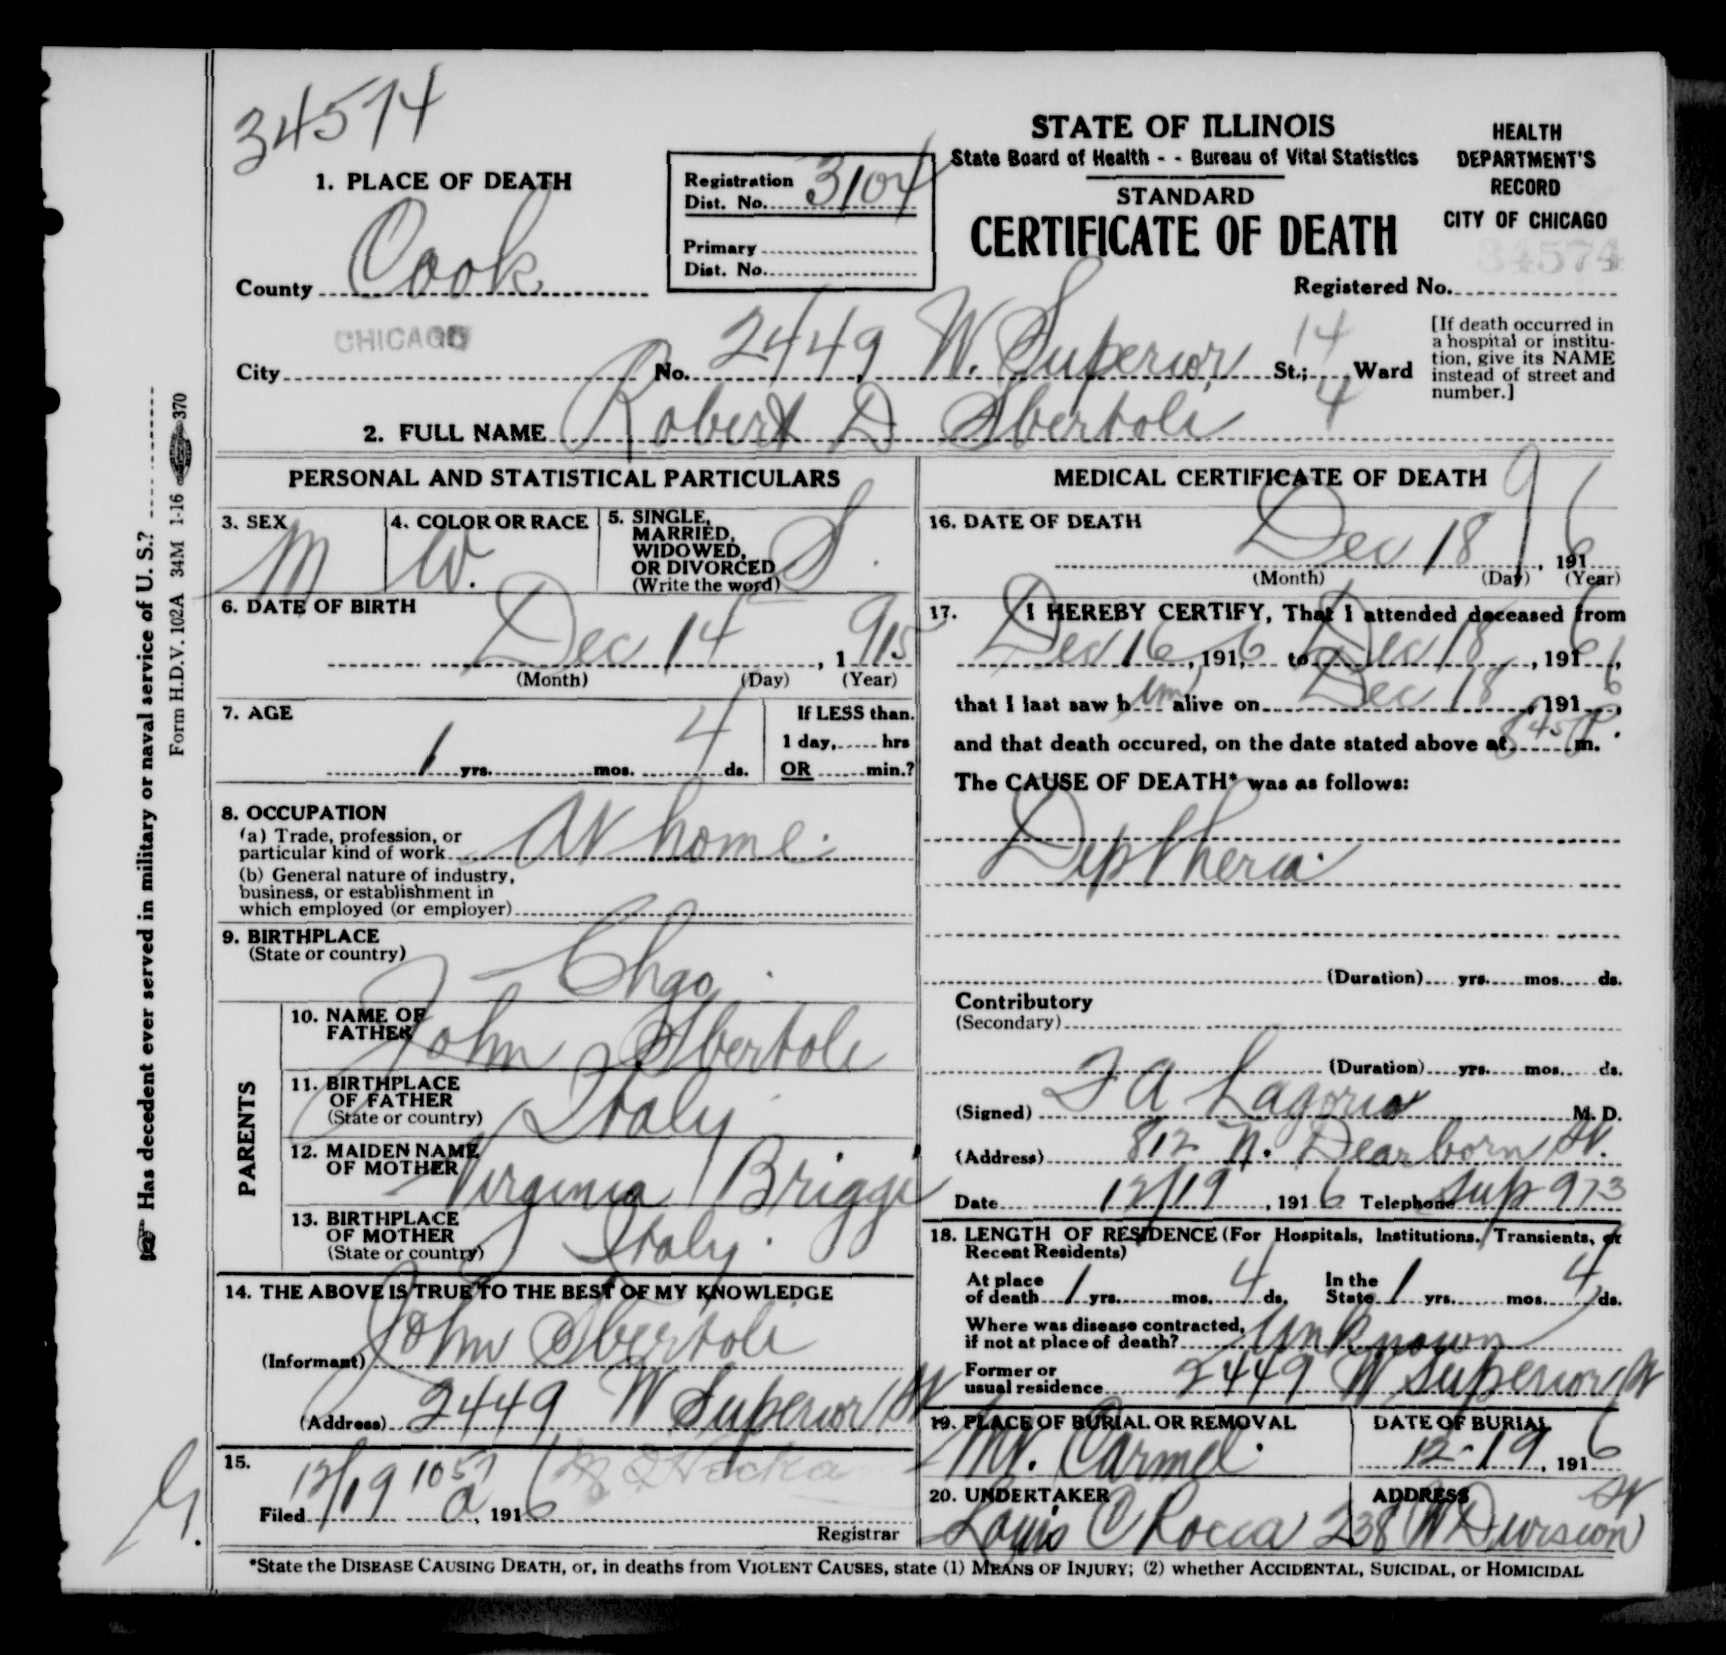 34574
STATE OF ILLINOIS
State Board of Health - - Bureau of Vital Statistics
STANDARD
CERTIFICATE OF DEATH
HEALTH
DEPARTMENT'S
RECORD
CITY OF CHICAGO
34574
Registered No.
1. PLACE OF DEATH
Registration
Dist. No. 3104
Primary
Dist. No.
County Cook
City CHICAGO No. 2449 W. Superior St.; 14 Ward
4
[If death occurred in
a hospital or institu-
tion, give its NAME
instead of street and
number.]
2. FULL NAME Robert D Sbertoli
PERSONAL AND STATISTICAL PARTICULARS
3. SEX M
4. COLOR OR RACE W.
5. SINGLE,
MARRIED,
WIDOWED,
OR DIVORCED
(Write the word) S
6. DATE OF BIRTH
Dec 14, 1915
(Month) (Day) (Year)
7. AGE
1 yrs. mos. 4 ds.
If LESS than
1 day, hrs
OR min.?
8. OCCUPATION
(a) Trade, profession, or
particular kind of work At home
(b) General nature of industry,
business, or establishment in
which employed (or employer)
9. BIRTHPLACE
(State or country) Chgo
PARENTS
10. NAME OF
FATHER John Sbertoli
11. BIRTHPLACE
OF FATHER
(State or country) Italy
12. MAIDEN NAME
OF MOTHER Virginia Briggs
13. BIRTHPLACE
OF MOTHER
(State or country) Italy
14. THE ABOVE IS TRUE TO THE BEST OF MY KNOWLEDGE
(Informant) John Sbertoli
(Address) 2449 W Superior St
15.
Filed 12/19 1057 a, 1916
Registrar
MEDICAL CERTIFICATE OF DEATH
96
16. DATE OF DEATH
Dec 18, 1916
(Month) (Day) (Year)
17. I HEREBY CERTIFY, That I attended deceased from
Dec 16, 1916 to Dec 18, 1916,
that I last saw him alive on Dec 18, 1916,
and that death occured, on the date stated above at 845 P m.
The CAUSE OF DEATH* was as follows:
Diptheria
(Duration) yrs. mos. ds.
Contributory
(Secondary)
(Duration) yrs. mos. ds.
(Signed) F A Lagorio M. D.
(Address) 812 N. Dearborn St.
Date 12/19, 1916 Telephone Sup 973
18. LENGTH OF RESIDENCE (For Hospitals, Institutions, Transients, or
Recent Residents)
At place
of death 1 yrs. mos. 4 ds.
In the
State 1 yrs. mos. 4 ds.
Where was disease contracted,
if not at place of death? Unknown
Former or
usual residence 2449 W Superior St
19. PLACE OF BURIAL OR REMOVAL
Mt. Carmel
DATE OF BURIAL
12-19, 1916
20. UNDERTAKER
Louis C Rocca
ADDRESS
238 W Division St
*State the DISEASE CAUSING DEATH, or, in deaths from VIOLENT CAUSES, state (1) MEANS OF INJURY; (2) whether ACCIDENTAL, SUICIDAL, or HOMICIDAL
Has decedent ever served in military or naval service of U. S.?
Form H.D.V. 102A 34M 1-16 370